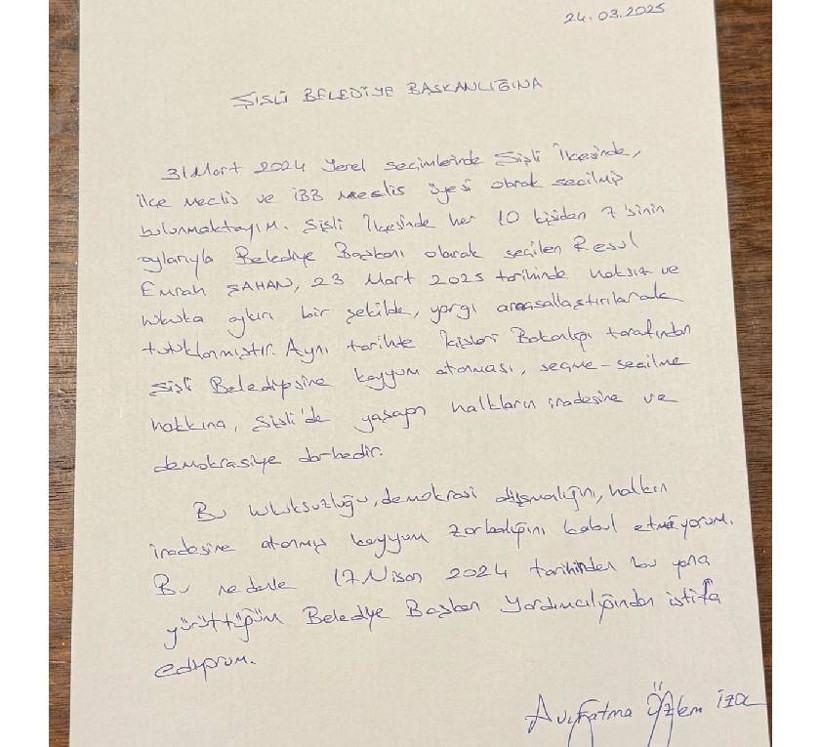 24.03.2025
ŞİŞLİ BELEDİYE BAŞKANLIĞINA
31 Mart 2024 Yerel seçimlerinde Şişli İlçesinde,
İlçe Meclis ve İBB Meclis üyesi olarak seçilmiş
bulunmaktayım. Şişli İlçesinde her 10 kişiden 7'sinin
oylarıyla Belediye Başkanı olarak seçilen Resul
Emrah ŞAHAN, 23 Mart 2025 tarihinde haksız ve
hukuka aykırı bir şekilde, yargı araçsallaştırılarak
tutuklanmıştır. Aynı tarihte İçişleri Bakanlığı tarafından
Şişli Belediyesine kayyum atanması, seçme-seçilme
hakkına, Şişli'de yaşayan halkların iradesine ve
demokrasiye darbedir.
Bu hukuksuzluğu, demokrasi düşmanlığını, halkın
iradesine atanmış kayyum zorbalığını kabul etmiyorum.
Bu nedenle 17 Nisan 2024 tarihinden bu yana
yürüttüğüm Belediye Başkan Yardımcılığından istifa
ediyorum.
Av. Fatma Özlem